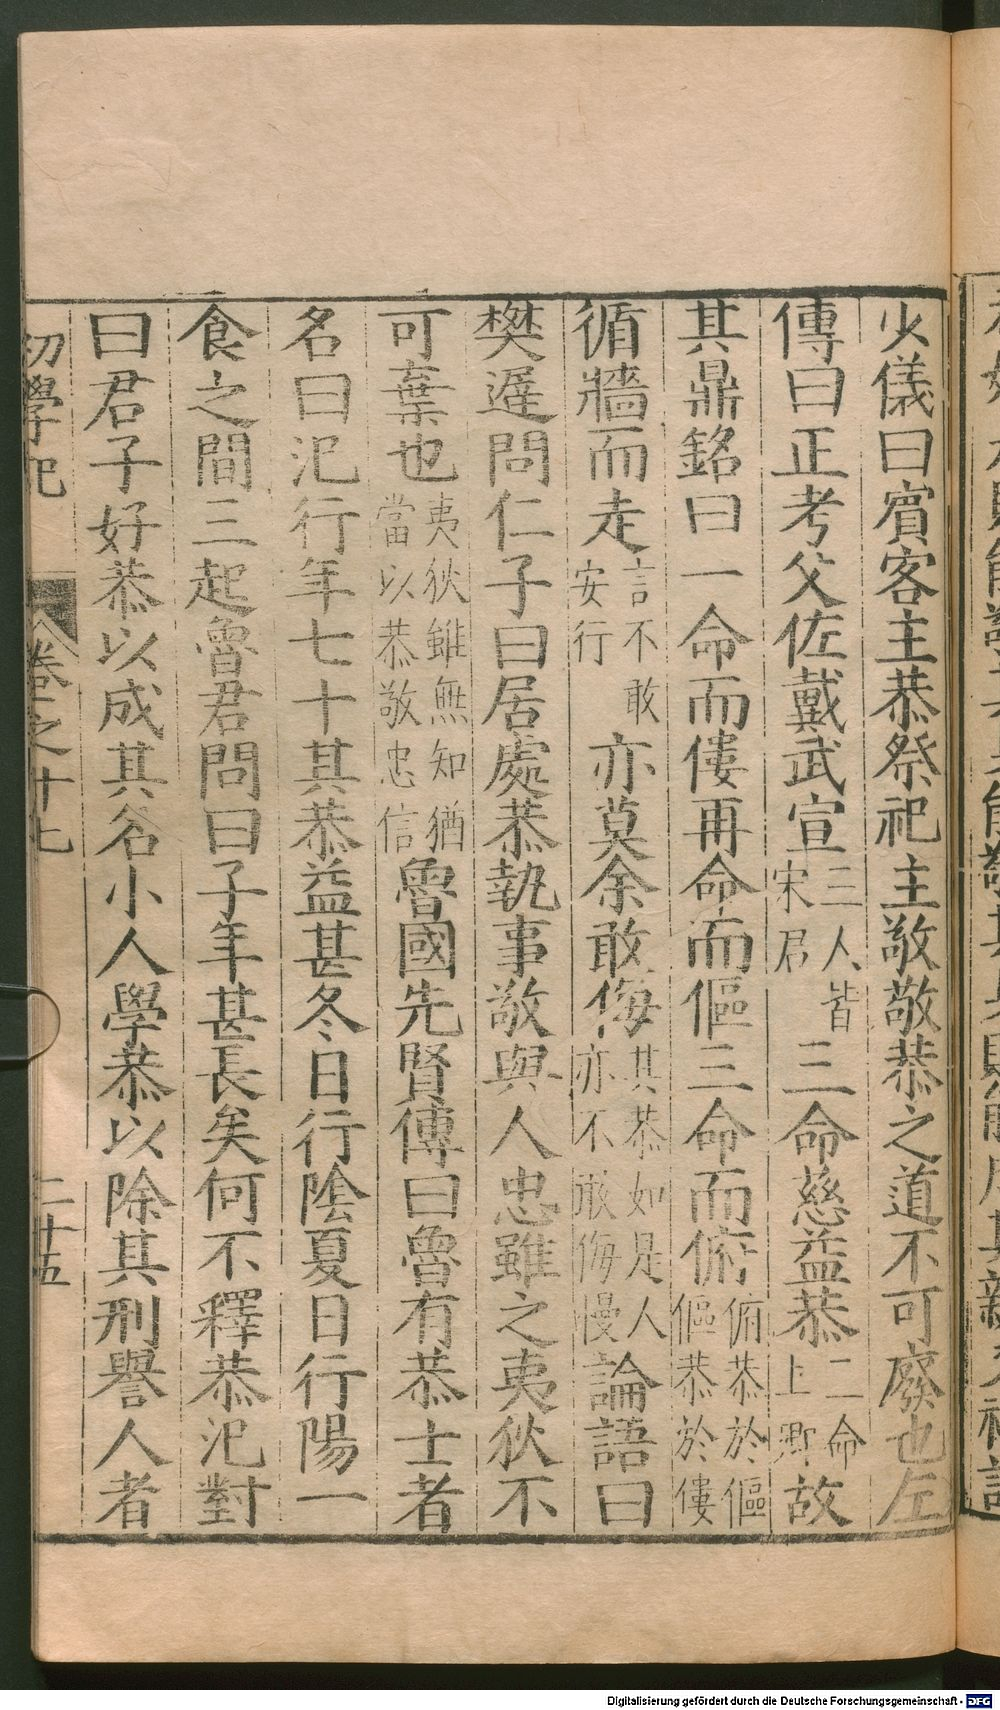 少儀曰賔客主恭祭祀主敬敬恭之道不可廢也左
傳曰正考父佐戴武宣三人皆宋君三命慈益恭二命上卿故
其鼎銘曰一命而僂再命而傴三命而俯俯恭於傴傴恭於僂
循牆而走言不敢安行亦莫余敢侮其恭如是人亦不敢侮慢論語曰
樊遲問仁子曰居處恭執事敬與人忠雖之夷狄不
可棄也夷狄雖無知猶當以恭敬忠信魯國先賢傳曰魯有恭士者
名曰汜行年七十其恭益甚冬日行陰夏日行陽一
食之間三起魯君問曰子年甚長矣何不釋恭汜對
曰君子好恭以成其名小人學恭以除其刑譽人者
初學記
卷之十七
二十五
Digitalisierung gefördert durch die Deutsche Forschungsgemeinschaft - DFG